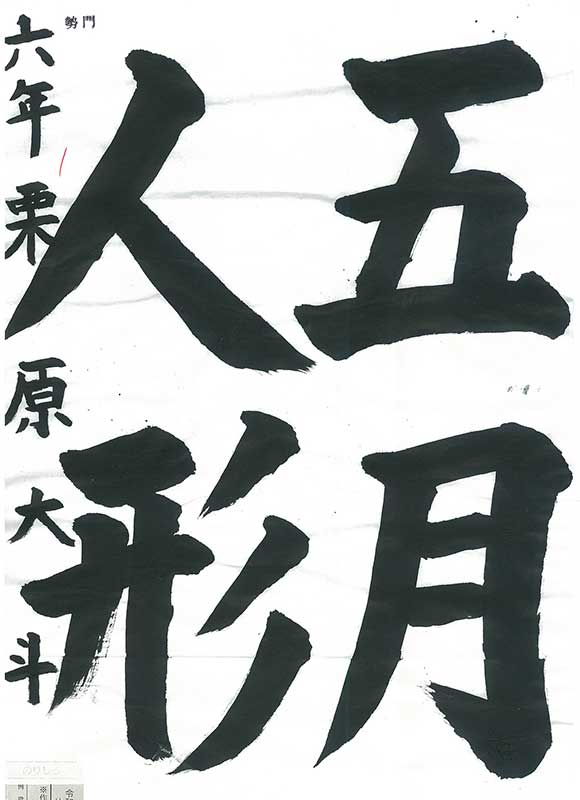 五月
人形
六年 栗原大斗
門
勢